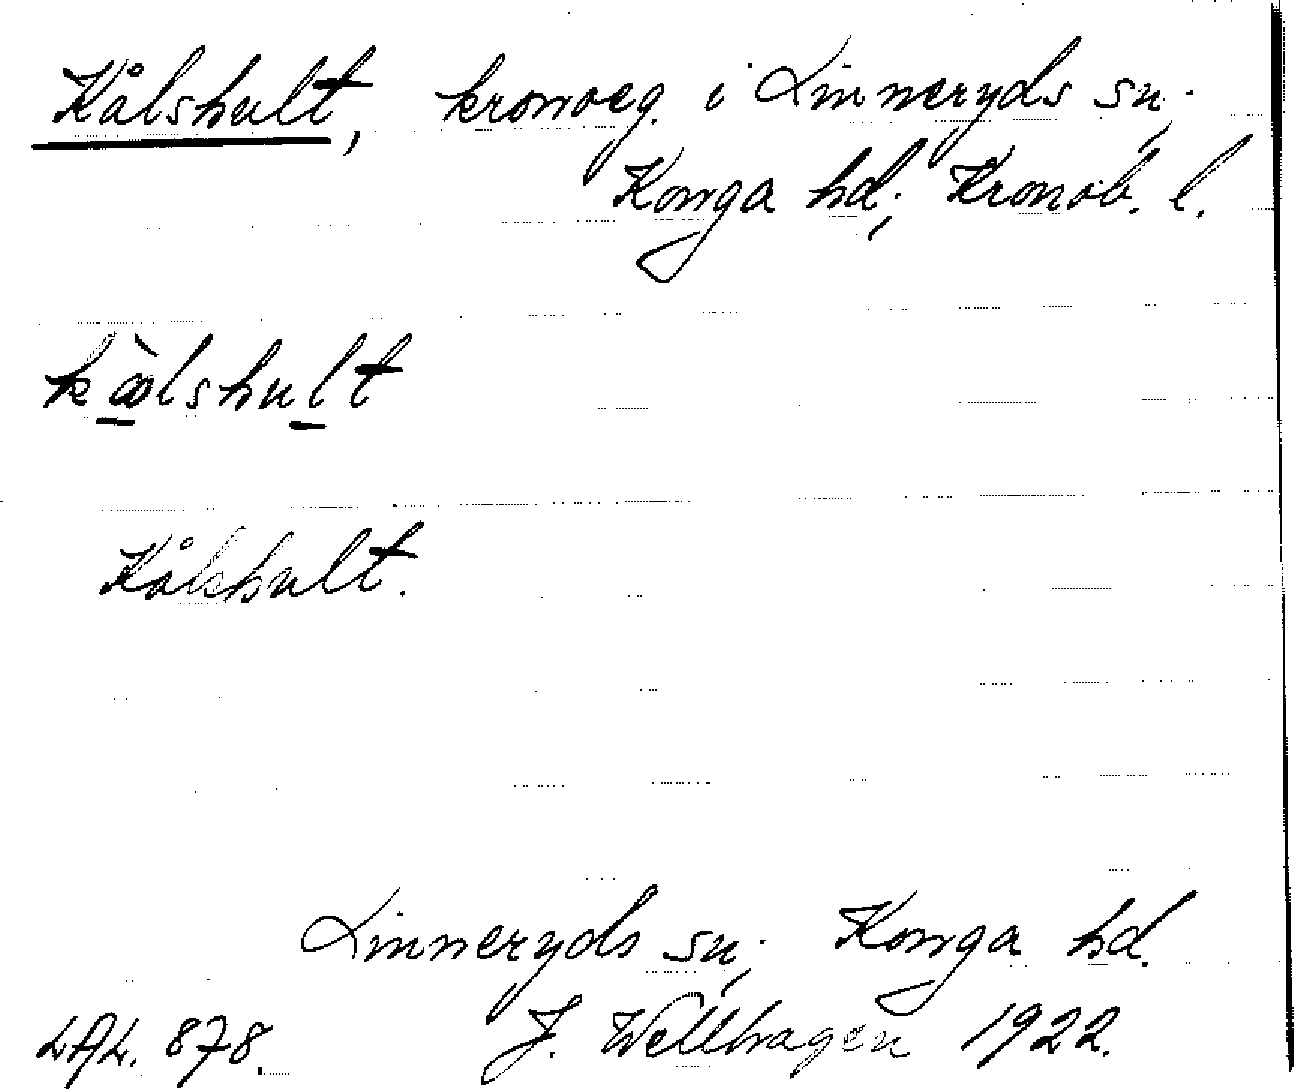 Kålshult, kronoeg. i Linneryds sn.,
Konga hd., Kronob. l.
kòlshult
Kålshult.
Linneryds sn., Konga hd.
LAL. 878. J. Wellhagen 1922.